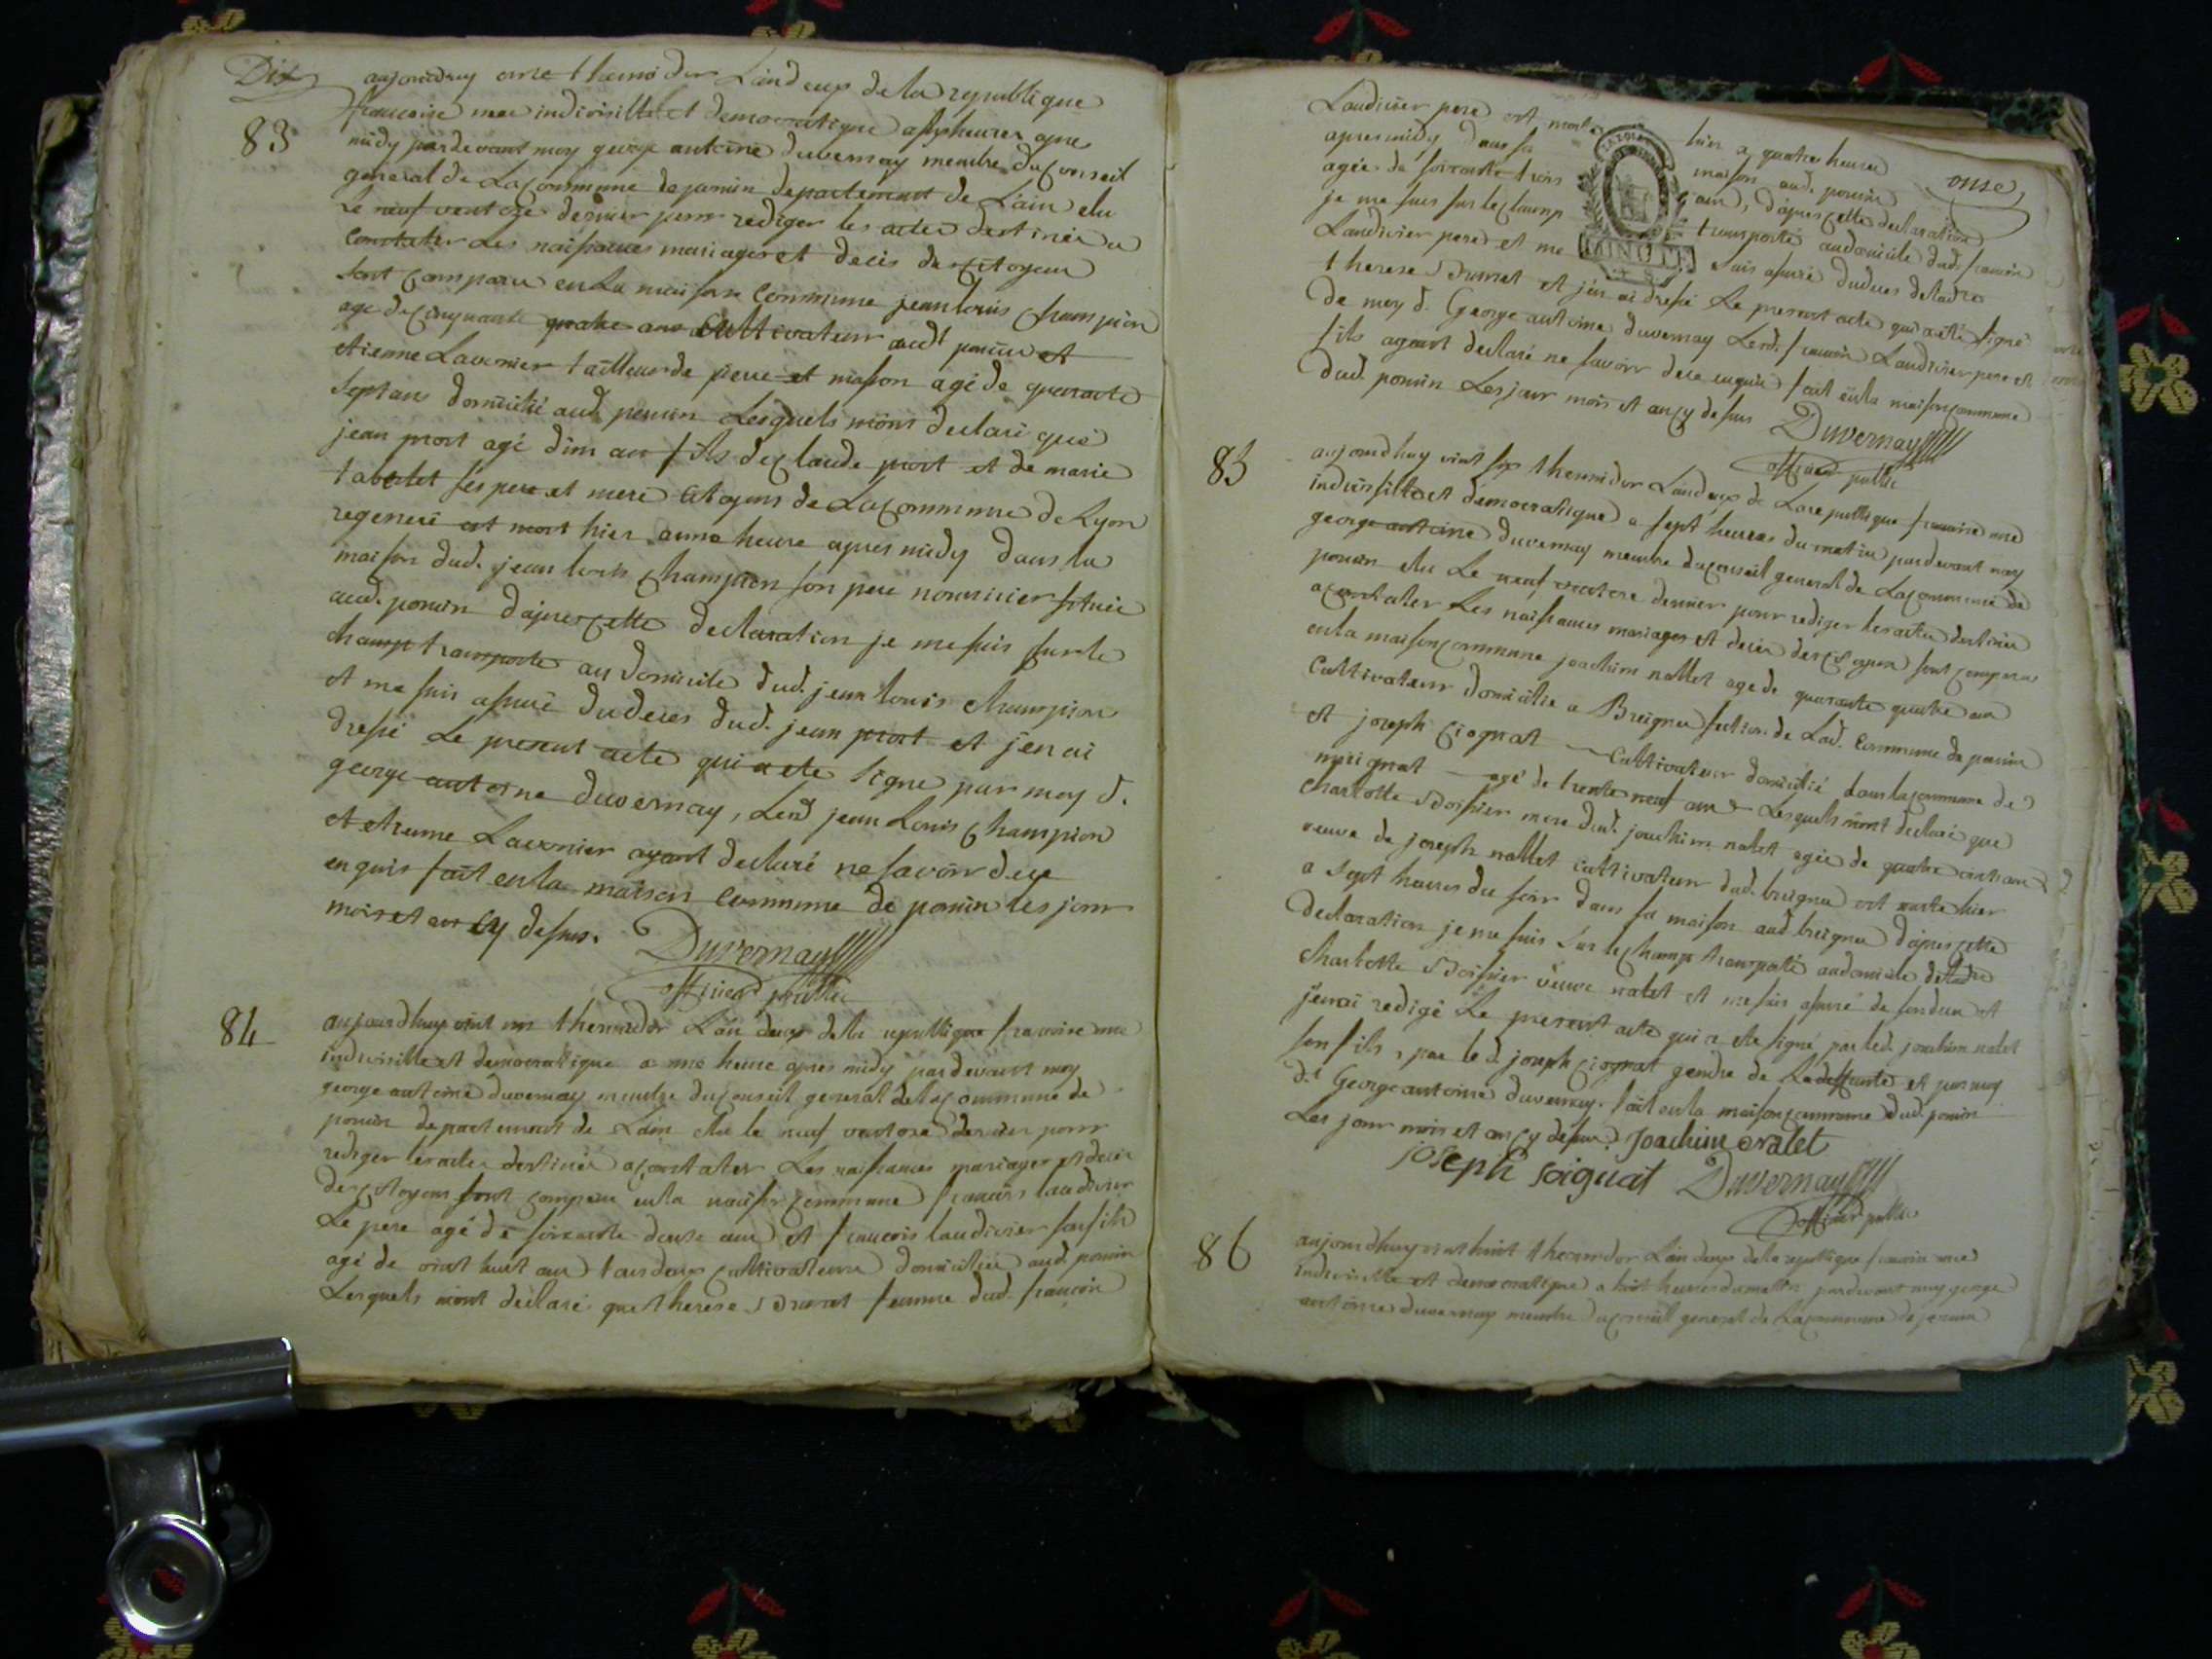 Dix
aujourdhuy onze thermidor L'an deux de la republique
francoise une indivisible et democratique a six heures apres
83
midy pardevant moy george antoine duvernay membre du conseil
general de La commune de poncin departement de L'ain elu
Le neuf ventoze dernier pour rediger les actes destinés a
Constater Les naissances mariages et decès des citoyens
sont comparu en La maison Commune jean louis champion
agé de cinquante quatre ans Cultivateur audt poncin et
etienne Lavernier tailleur de pierre et masson agé de quarante
sept ans domicilié aud. poncin Lesquels m'ont declaré que
jean prost agé d'un an fils de claude prost et de marie
ses pere et mere Citoyens de La commune de Lyon
regeneré est mort hier a une heure apres midy dans la
maison dud. jean louis champion son pere nourricier située
aud. poncin d'apres cette declaration je me suis sur le
champ transporté au domicile dud. jean louis champion
et me suis assuré du deces dud. jean prost et j'en ai
dressé Le present acte qui a eté signé par moy d.
george antoine duvernay, Lesd jean Louis champion
et etienne Lavernier ayant declaré ne savoir de ce
enquis fait en la maison commune de poncin les jour
mois et an cy dessus. Duvernay
officier public
84
aujourdhuy vint un thermidor L'an deux de la republique francoise une
indivisible et democratique a une heure apres midy pardevant moy
george antoine duvernay membre du conseil general de la commune de
poncin departement de L'ain elu le neuf ventose dernier pour
rediger les actes destinés a constater Les naissances mariages et decès
des citoyens sont comparu en la maison commune francois laudivier
Le pere agé de soixante douze ans et francois laudivier son fils
agé de vint huit ans tous deux cultivateurs domiciliés aud. poncin
Lesquels m'ont declaré que therese femme dud. francois
Laudivier pere est morte hier a quatre heures
apres midy dans sa maison aud. poncin
onse
agée de soixante trois ans, d'apres cette declaration
je me suis sur le champ transporté au domicile dud. francois
Laudivier pere et me suis assuré du deces de ladite
MINUTE
therese et j'en ai dressé Le present acte qui a eté signé
de moy d. George antoine duvernay Lesd. francois Laudivier pere et
fils ayant declaré ne savoir de ce enquis fait en la maison commune
dud. poncin Les jour mois et an cy dessus Duvernay
officier public
85
aujourdhuy vint six thermidor L'an deux de La republique francoise une
indivisible et democratique a sept heures du matin pardevant moy
george antoine duvernay membre du conseil general de La commune de
poncin elu Le neuf ventose dernier pour rediger les actes destinés
a constater Les naissances mariages et decès des citoyens sont comparus
en la maison commune joachim nallet agé de quarante quatre ans
Cultivateur domicilié a Breignes section de Lad. Commune de poncin
et joseph ciognat Cultivateur domicilié dans la commune de
merignat agé de trente neuf ans Lesquels m'ont declaré que
charlotte mere dud. joachim nalet agée de quatre
veuve de joseph nallet cultivateur dud. breignes est morte hier
a sept heures du soir dans sa maison aud breignes d'apres cette
declaration je me suis sur le champ transporté au domicile de ladite
charlotte veuve nalet et me suis assuré de son deces et
j'en ai redigé Le present acte qui a eté signé par led. joachim nalet
son fils, par le d. joseph ciognat gendre de La deffunte et par moy
d.t George antoine duvernay. fait en la maison commune dud. poncin
Les jour mois et an cy dessus. joachim nalet
joseph soignat Duvernay
officier public
86
aujourdhuy vint huit thermidor L'an deux de la republique francoise une
indivisible et democratique a huit heures du matin pardevant moy george
antoine duvernay membre du conseil general de La commune de poncin